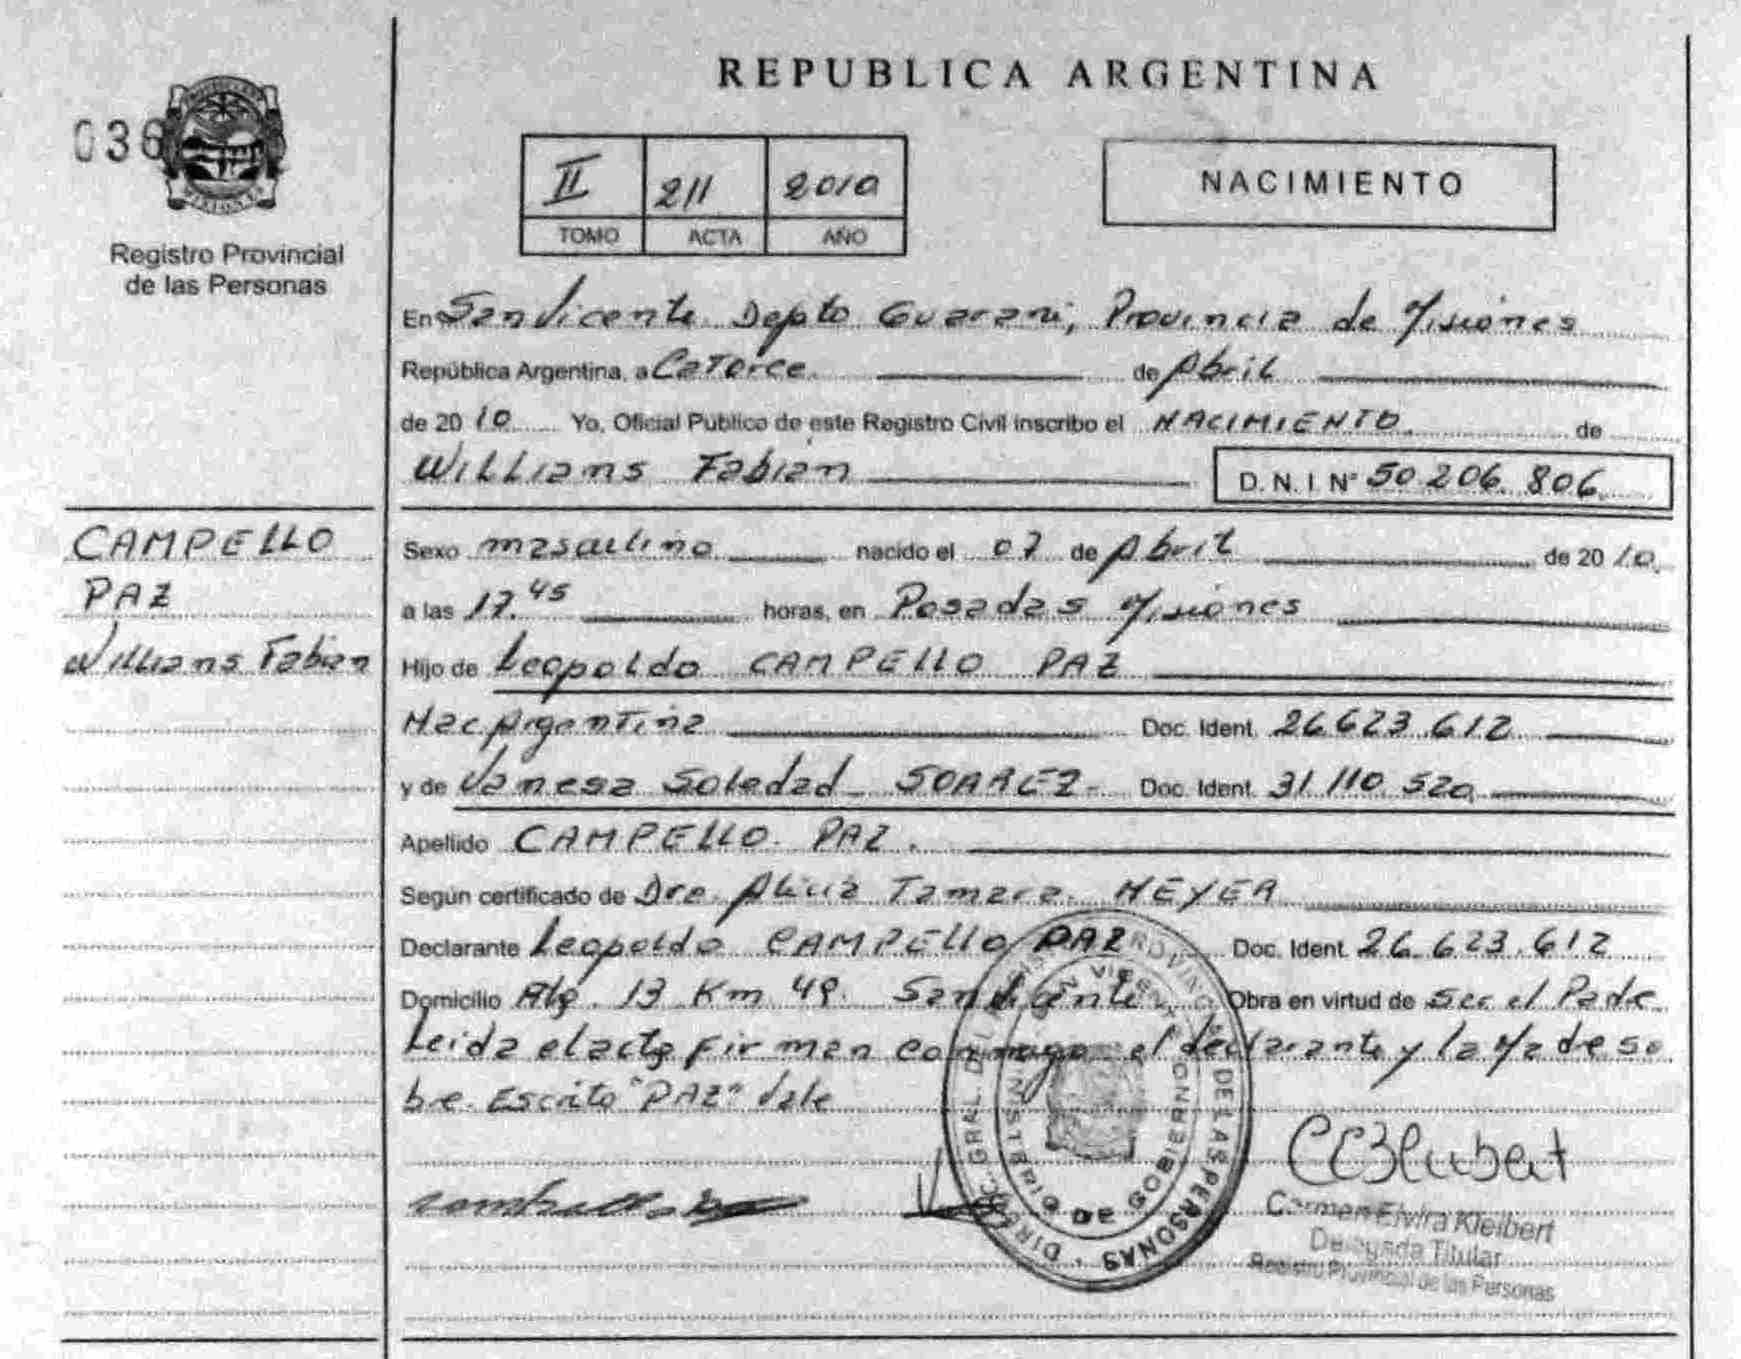 REPUBLICA ARGENTINA
036
II 211 2010
TOMO ACTA AÑO
NACIMIENTO
Registro Provincial
de las Personas
En San Vicente Depto Guarani, Provincia de Misiones
República Argentina, a Catorce de Abril
de 2010 Yo, Oficial Público de este Registro Civil inscribo el NACIMIENTO de
Willians Fabian
D.N.I Nº 50.206.806
CAMPELLO
PAZ
Willians Fabian
Sexo masculino nacido el 07 de Abril de 2010
a las 17.45 horas, en Posadas Misiones
Hijo de Leopoldo CAMPELLO PAZ
Nac Argentina Doc. Ident. 26.623.612
y de Vanesa Soledad SOAREZ Doc. Ident. 31.110.520
Apellido CAMPELLO PAZ.
Según certificado de Dra. Alicia Tamara MEYER
Declarante Leopoldo CAMPELLO PAZ Doc. Ident. 26.623.612
Domicilio Alg. 13 Km 49. San Vicente Obra en virtud de ser el Padre
Leida el acta firman conmigo el declarante y la Madre so
bre Escrito "PAZ" Vale
DIRECC. GRAL. DEL REGISTRO PROVINC. DE LAS PERSONAS
MINISTERIO DE GOBIERNO
Carmen Elvira Kleibert
Delegada Titular
Registro Provincial de las Personas